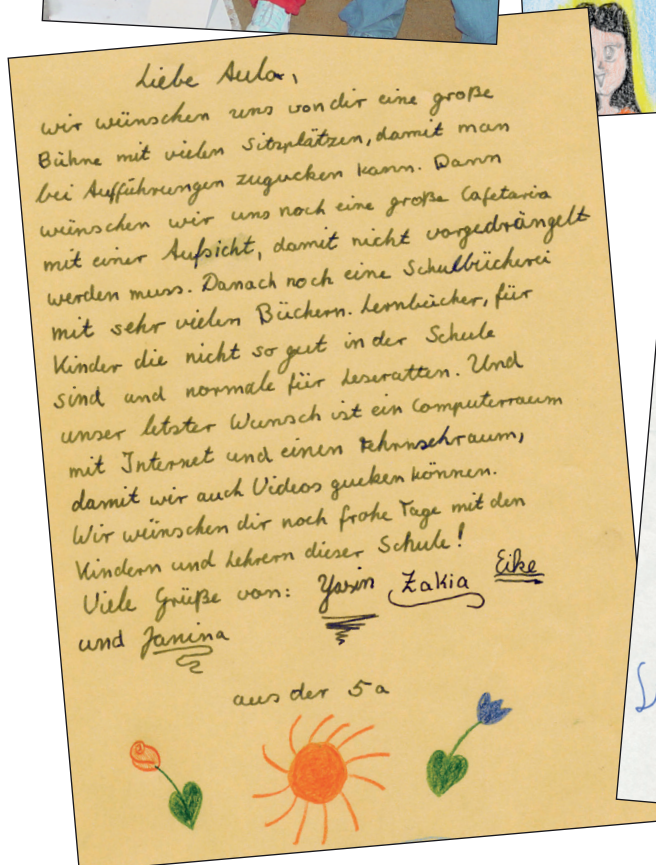 Liebe Aula,
wir wünschen uns von dir eine große
Bühne mit vielen Sitzplätzen, damit man
bei Aufführungen zugucken kann. Dann
wünschen wir uns noch eine große Cafetaria
mit einer Aufsicht, damit nicht vorgedrängelt
werden muss. Danach noch eine Schulbücherei
mit sehr vielen Büchern. Lernbücher, für
Kinder die nicht so gut in der Schule
sind und normale für Leseratten. Und
unser letster Wunsch ist ein Computerraum
mit Internet und einen Fehrnsehraum,
damit wir auch Videos gucken können.
Wir wünschen dir noch frohe Tage mit den
Kindern und Lehrern dieser Schule!
Viele Grüße von: Yasin Zakia Eike
und Janina
aus der 5a